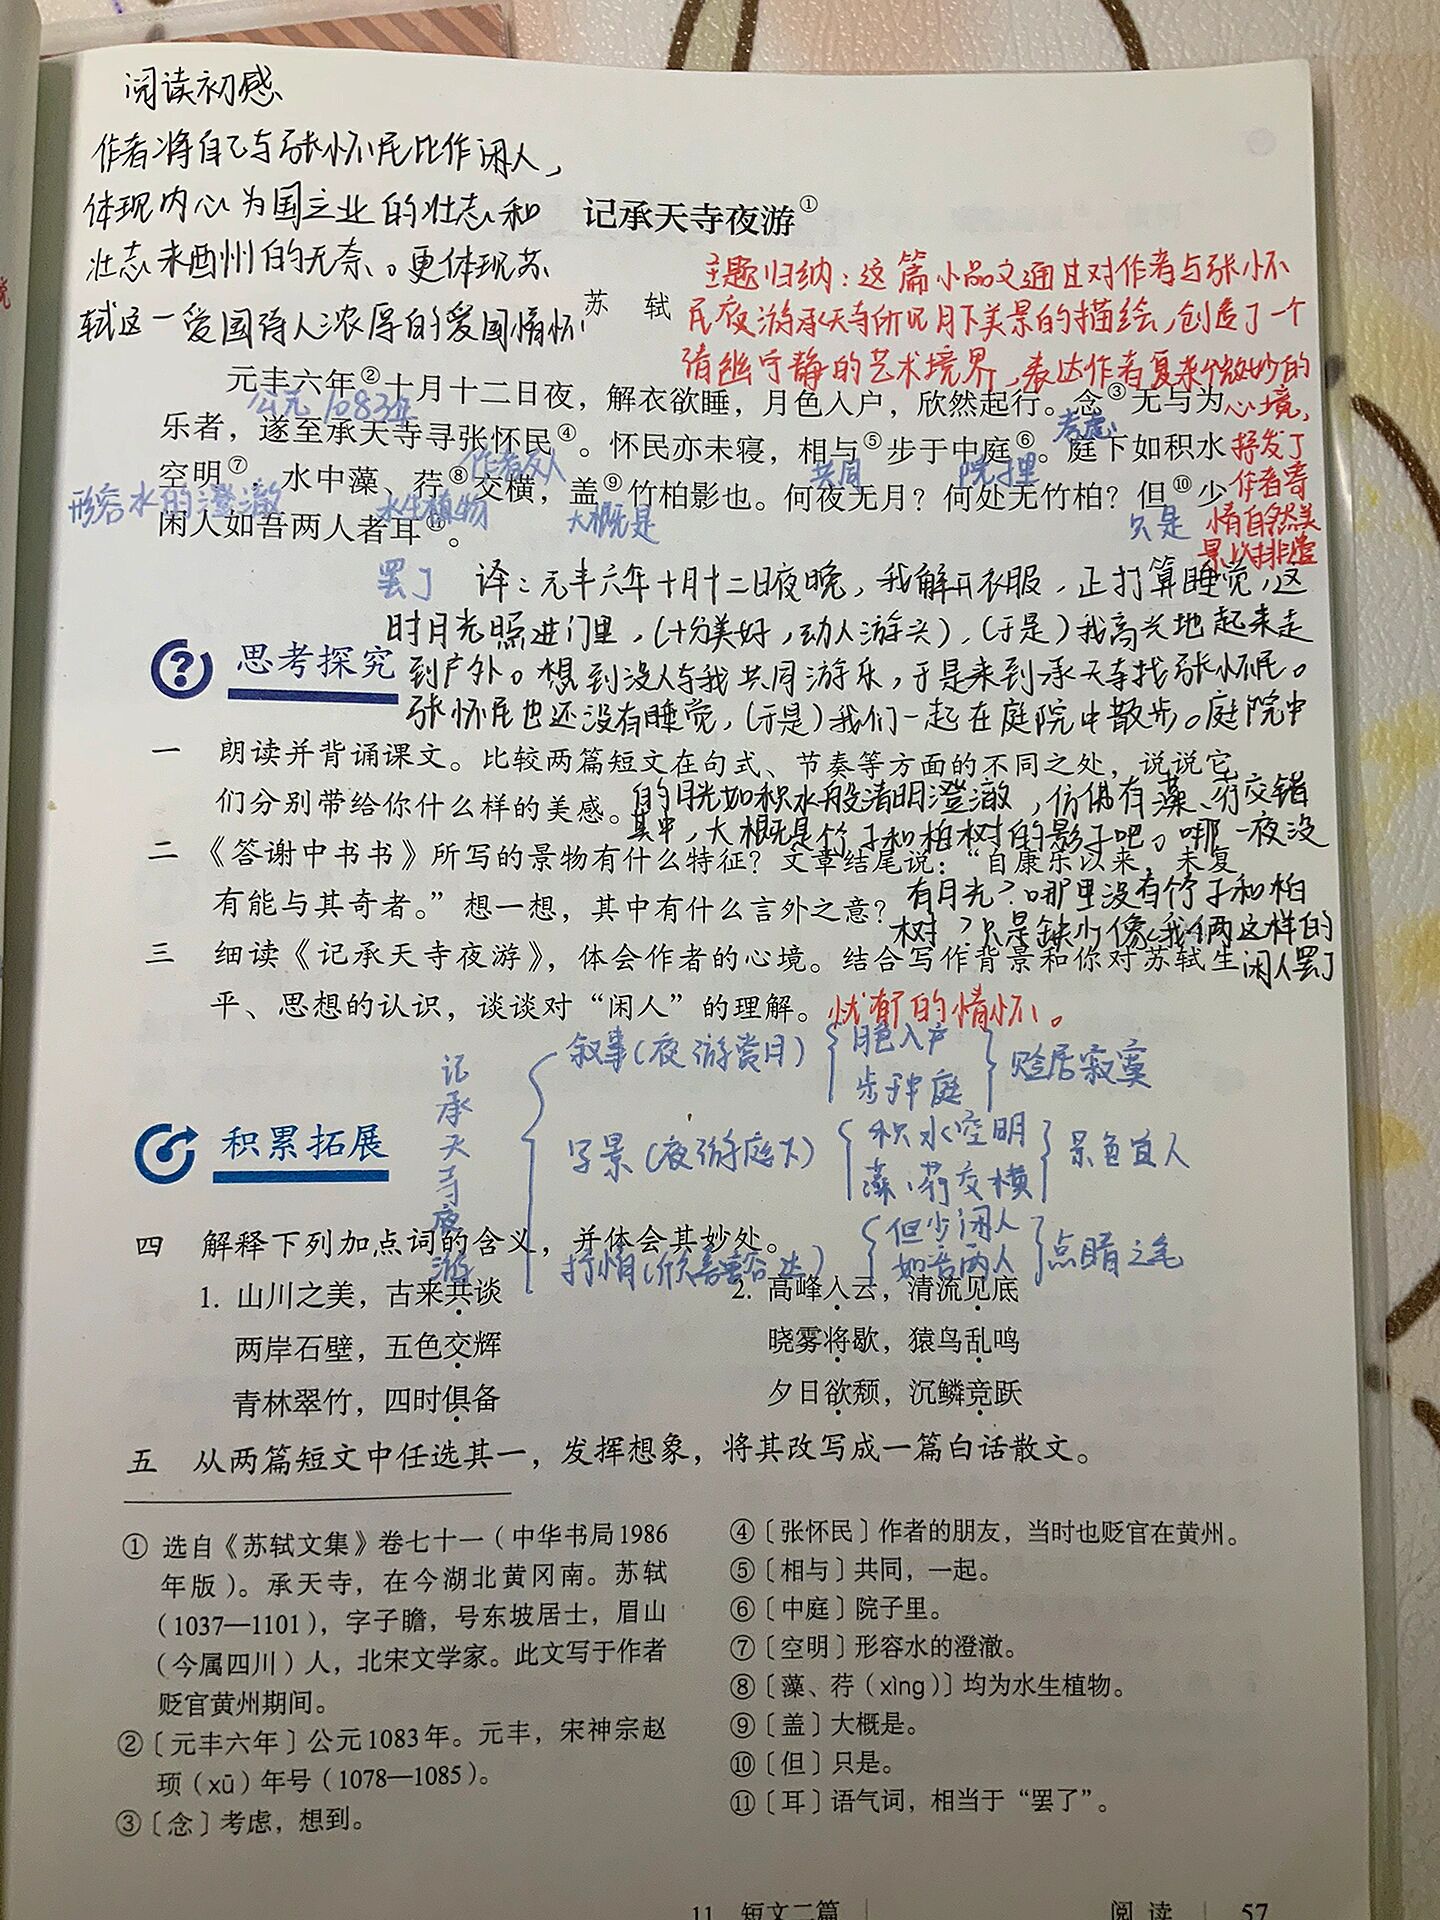 阅读初感
作者将自己与张怀民比作闲人，
体现内心为国立业的壮志和
壮志未酉州的无奈。更体现苏
轼这一爱国诗人浓厚的爱国情怀
记承天寺夜游①
苏 轼
主题归纳：这篇小品文通过对作者与张怀
民夜游承天寺所见月下美景的描绘，创造了一个
清幽宁静的艺术境界，表达作者复杂微妙的
心境，
抒发了
作者寄
情自然美
景以排遣
忧郁的情怀。
元丰六年②十月十二日夜，解衣欲睡，月色入户，欣然起行。念③无与为
公元1083年
考虑
乐者，遂至承天寺寻张怀民④。怀民亦未寝，相与⑤步于中庭⑥。庭下如积水
作者友人
共同
院子里
空明⑦，水中藻、荇⑧交横，盖⑨竹柏影也。何夜无月？何处无竹柏？但⑩少
形容水的澄澈
水生植物
大概是
只是
闲人如吾两人者耳⑪。
罢了
译：元丰六年十月十二日夜晚，我解开衣服，正打算睡觉，这
时月光照进门里，(十分美好，动人游兴)，(于是)我高兴地起来走
到户外。想到没人与我共同游乐，于是来到承天寺找张怀民。
张怀民也还没有睡觉，(于是)我们一起在庭院中散步。庭院中
的月光如积水般清明澄澈，仿佛有藻、荇交错
其中，大概是竹子和柏树的影子吧。哪一夜没
有月光？哪里没有竹子和柏
树？只是缺少像我俩这样的
闲人罢了
思考探究
一 朗读并背诵课文。比较两篇短文在句式、节奏等方面的不同之处，说说它
们分别带给你什么样的美感。
二 《答谢中书书》所写的景物有什么特征？文章结尾说：“自康乐以来，未复
有能与其奇者。”想一想，其中有什么言外之意？
三 细读《记承天寺夜游》，体会作者的心境。结合写作背景和你对苏轼生
平、思想的认识，谈谈对“闲人”的理解。
记承天寺夜游
叙事(夜游赏月)
月色入户
步于中庭
贬居寂寞
写景(夜游庭下)
积水空明
藻、荇交横
景色宜人
抒情(
但少闲人
如吾两人
点睛之笔
积累拓展
四 解释下列加点词的含义，并体会其妙处。
1. 山川之美，古来共谈
两岸石壁，五色交辉
青林翠竹，四时俱备
2. 高峰入云，清流见底
晓雾将歇，猿鸟乱鸣
夕日欲颓，沉鳞竞跃
五 从两篇短文中任选其一，发挥想象，将其改写成一篇白话散文。
① 选自《苏轼文集》卷七十一（中华书局1986
年版）。承天寺，在今湖北黄冈南。苏轼
（1037—1101），字子瞻，号东坡居士，眉山
（今属四川）人，北宋文学家。此文写于作者
贬官黄州期间。
②〔元丰六年〕公元1083年。元丰，宋神宗赵
顼（xū）年号（1078—1085）。
③〔念〕考虑，想到。
④〔张怀民〕作者的朋友，当时也贬官在黄州。
⑤〔相与〕共同，一起。
⑥〔中庭〕院子里。
⑦〔空明〕形容水的澄澈。
⑧〔藻、荇（xìng）〕均为水生植物。
⑨〔盖〕大概是。
⑩〔但〕只是。
⑪〔耳〕语气词，相当于“罢了”。
11 短文二篇
阅 读 57